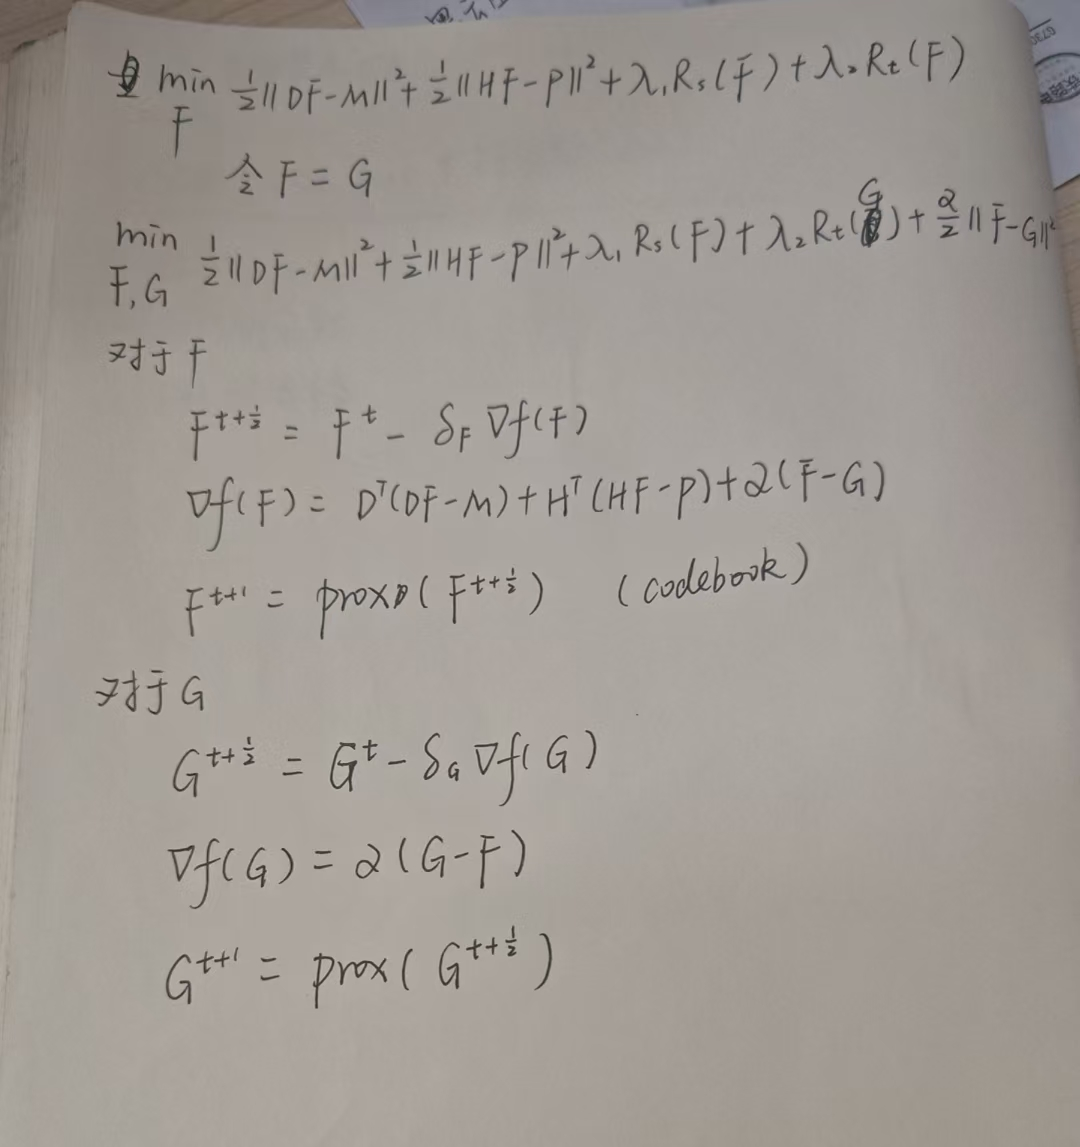 min ½||DF-M||²+½||HF-P||²+λ₁Rₛ(F)+λ₂Rₜ(F)
F
令 F = G
min ½||DF-M||²+½||HF-P||²+λ₁Rₛ(F)+λ₂Rₜ(G)+α/2||F-G||²
F,G
对于 F
F^{t+½} = F^t - δ_F ∇f(F)
∇f(F) = Dᵀ(DF-M)+Hᵀ(HF-P)+α(F-G)
F^{t+1} = prox(F^{t+½}) (codebook)
对于 G
G^{t+½} = G^t - δ_G ∇f(G)
∇f(G) = α(G-F)
G^{t+1} = prox(G^{t+½})